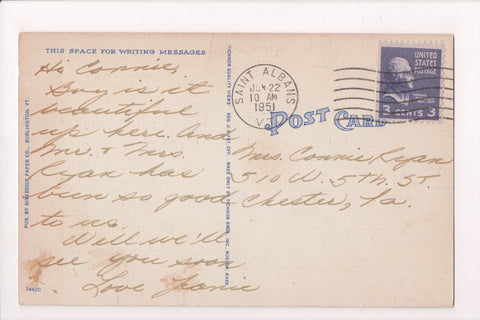 THIS SPACE FOR WRITING MESSAGES
Hi Connie,
Boy is it
beautiful
up here. And
Mr. & Mrs.
Ryan has
been so good
to us.
Well we'll
see you soon
Love
PUB. BY RIVERSIDE PAPER CO., BURLINGTON, VT.
74420
TICHNOR QUALITY VIEWS REG. U.S. PAT. OFF. MADE ONLY BY TICHNOR BROS., INC., BOSTON, MASS.
SAINT ALBANS
JUN 22
10 AM
1951
POST CARD
UNITED
STATES
POSTAGE
3 CENTS 3
Mrs. Connie Ryan
510 W. 5TH. ST.
Chester, Pa.